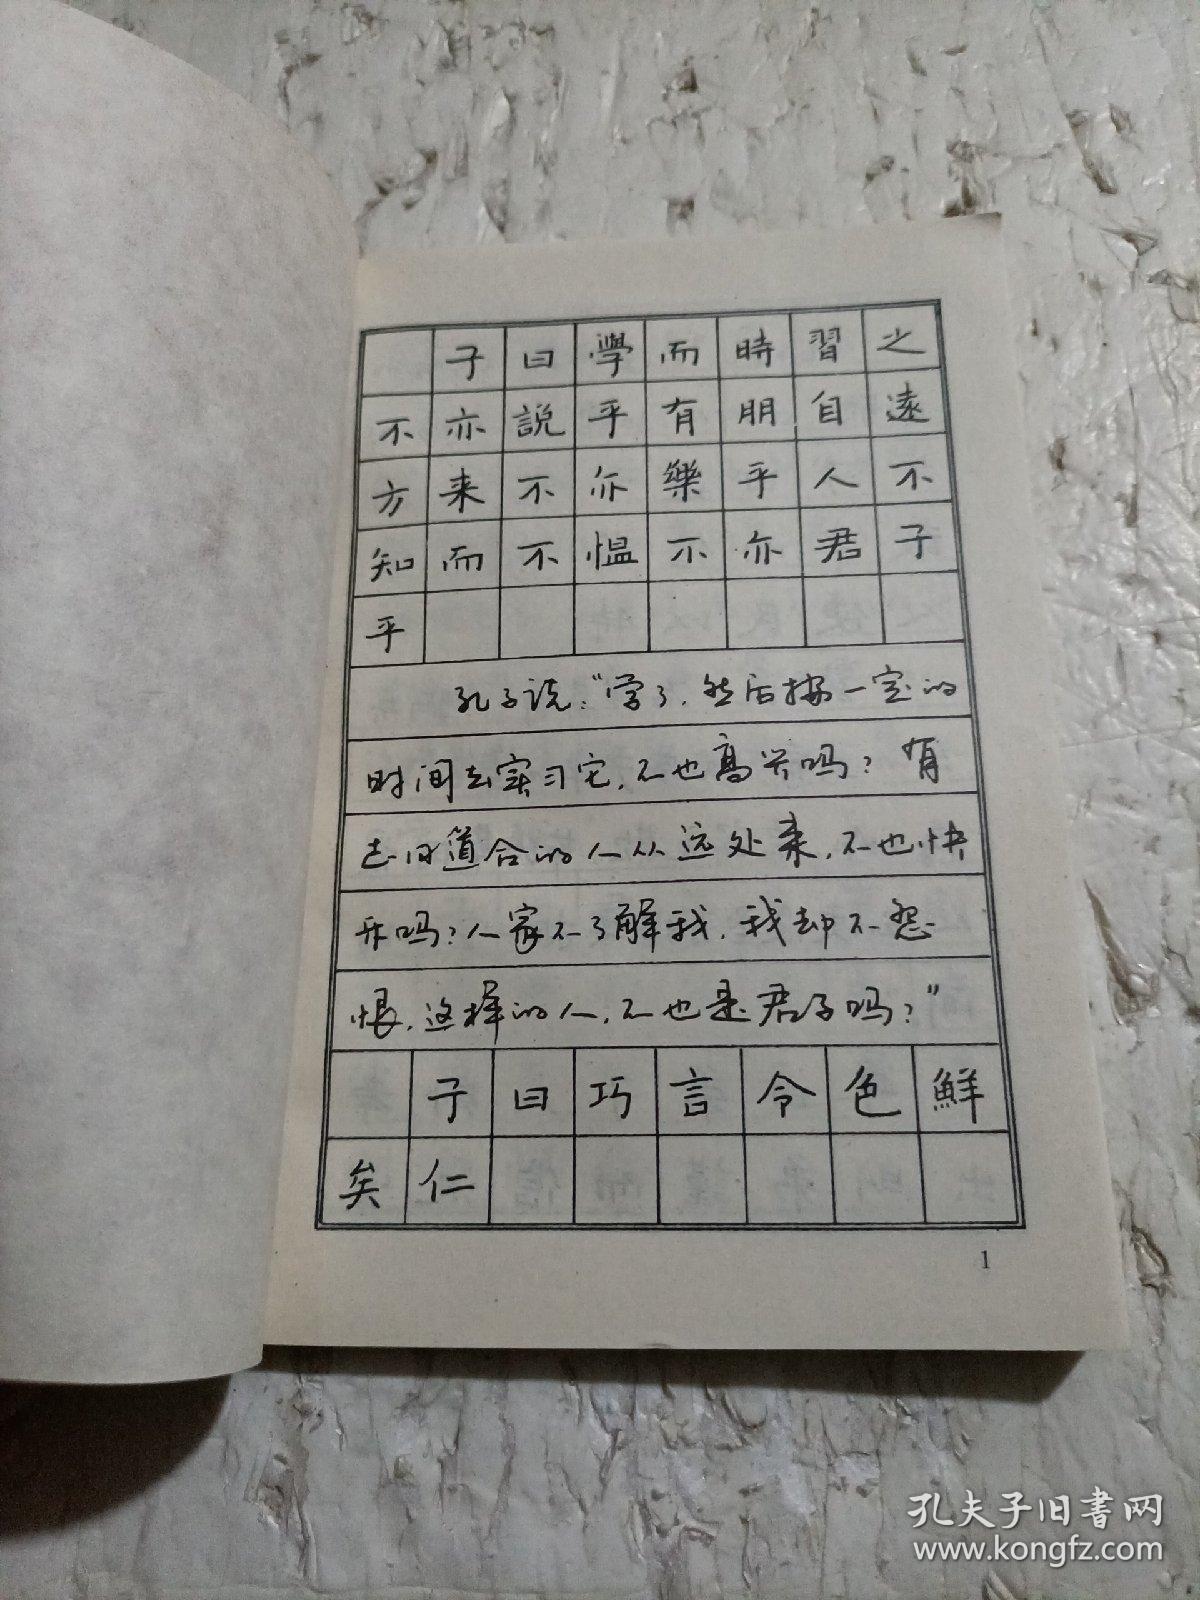 子曰學而時習之
不亦説乎有朋自遠
方来不亦樂乎人不
知而不愠不亦君子
乎
孔子说:“学了,然后按一定的
时间去实习它,不也高兴吗?有
志同道合的人从远处来,不也快
乐吗?人家不了解我,我却不怨
恨,这样的人,不也是君子吗?”
子曰巧言令色鮮
矣仁
1
孔夫子旧书网
www.kongfz.com